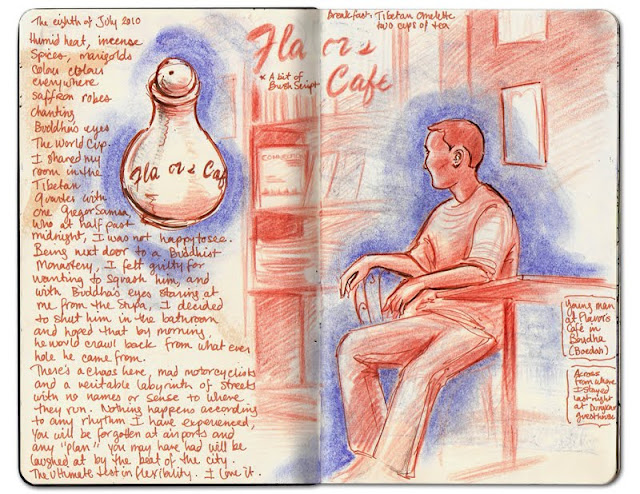 The eighth of July 2010
Humid heat, incense
Spices, marigolds
Colour colours
everywhere
saffron robes
chanting
Buddha's eyes
The World Cup.
I shared my
room in the
Tibetan
Quarter with
one Gregor Samsa,
who at half past
midnight, I was not happy to see.
Being next door to a Buddhist
Monastery, I felt guilty for
wanting to squash him, and
with Buddha's eyes staring at
me from the Stupa, I decided
to shut him in the bathroom
and hoped that by morning
he would crawl back from what ever
hole he came from.
There's a chaos here, mad motorcyclists
and a veritable labyrinth of streets
with no names or sense to where
they run. Nothing happens according
to any rhythm I have experienced,
You will be forgotten at airports and
any "plan" you may have had will be
laughed at by the beat of the city.
The ultimate test in flexibility. I love it.
Fla or's Caf
Fla or's
Cafe
* A bit of
Brush Script
Breakfast: Tibetan Omelette
two cups of tea
Young man
at Flavor's
Café in
Boudha
(Bodah)
Across
from where
I stayed
last night
at
guesthouse